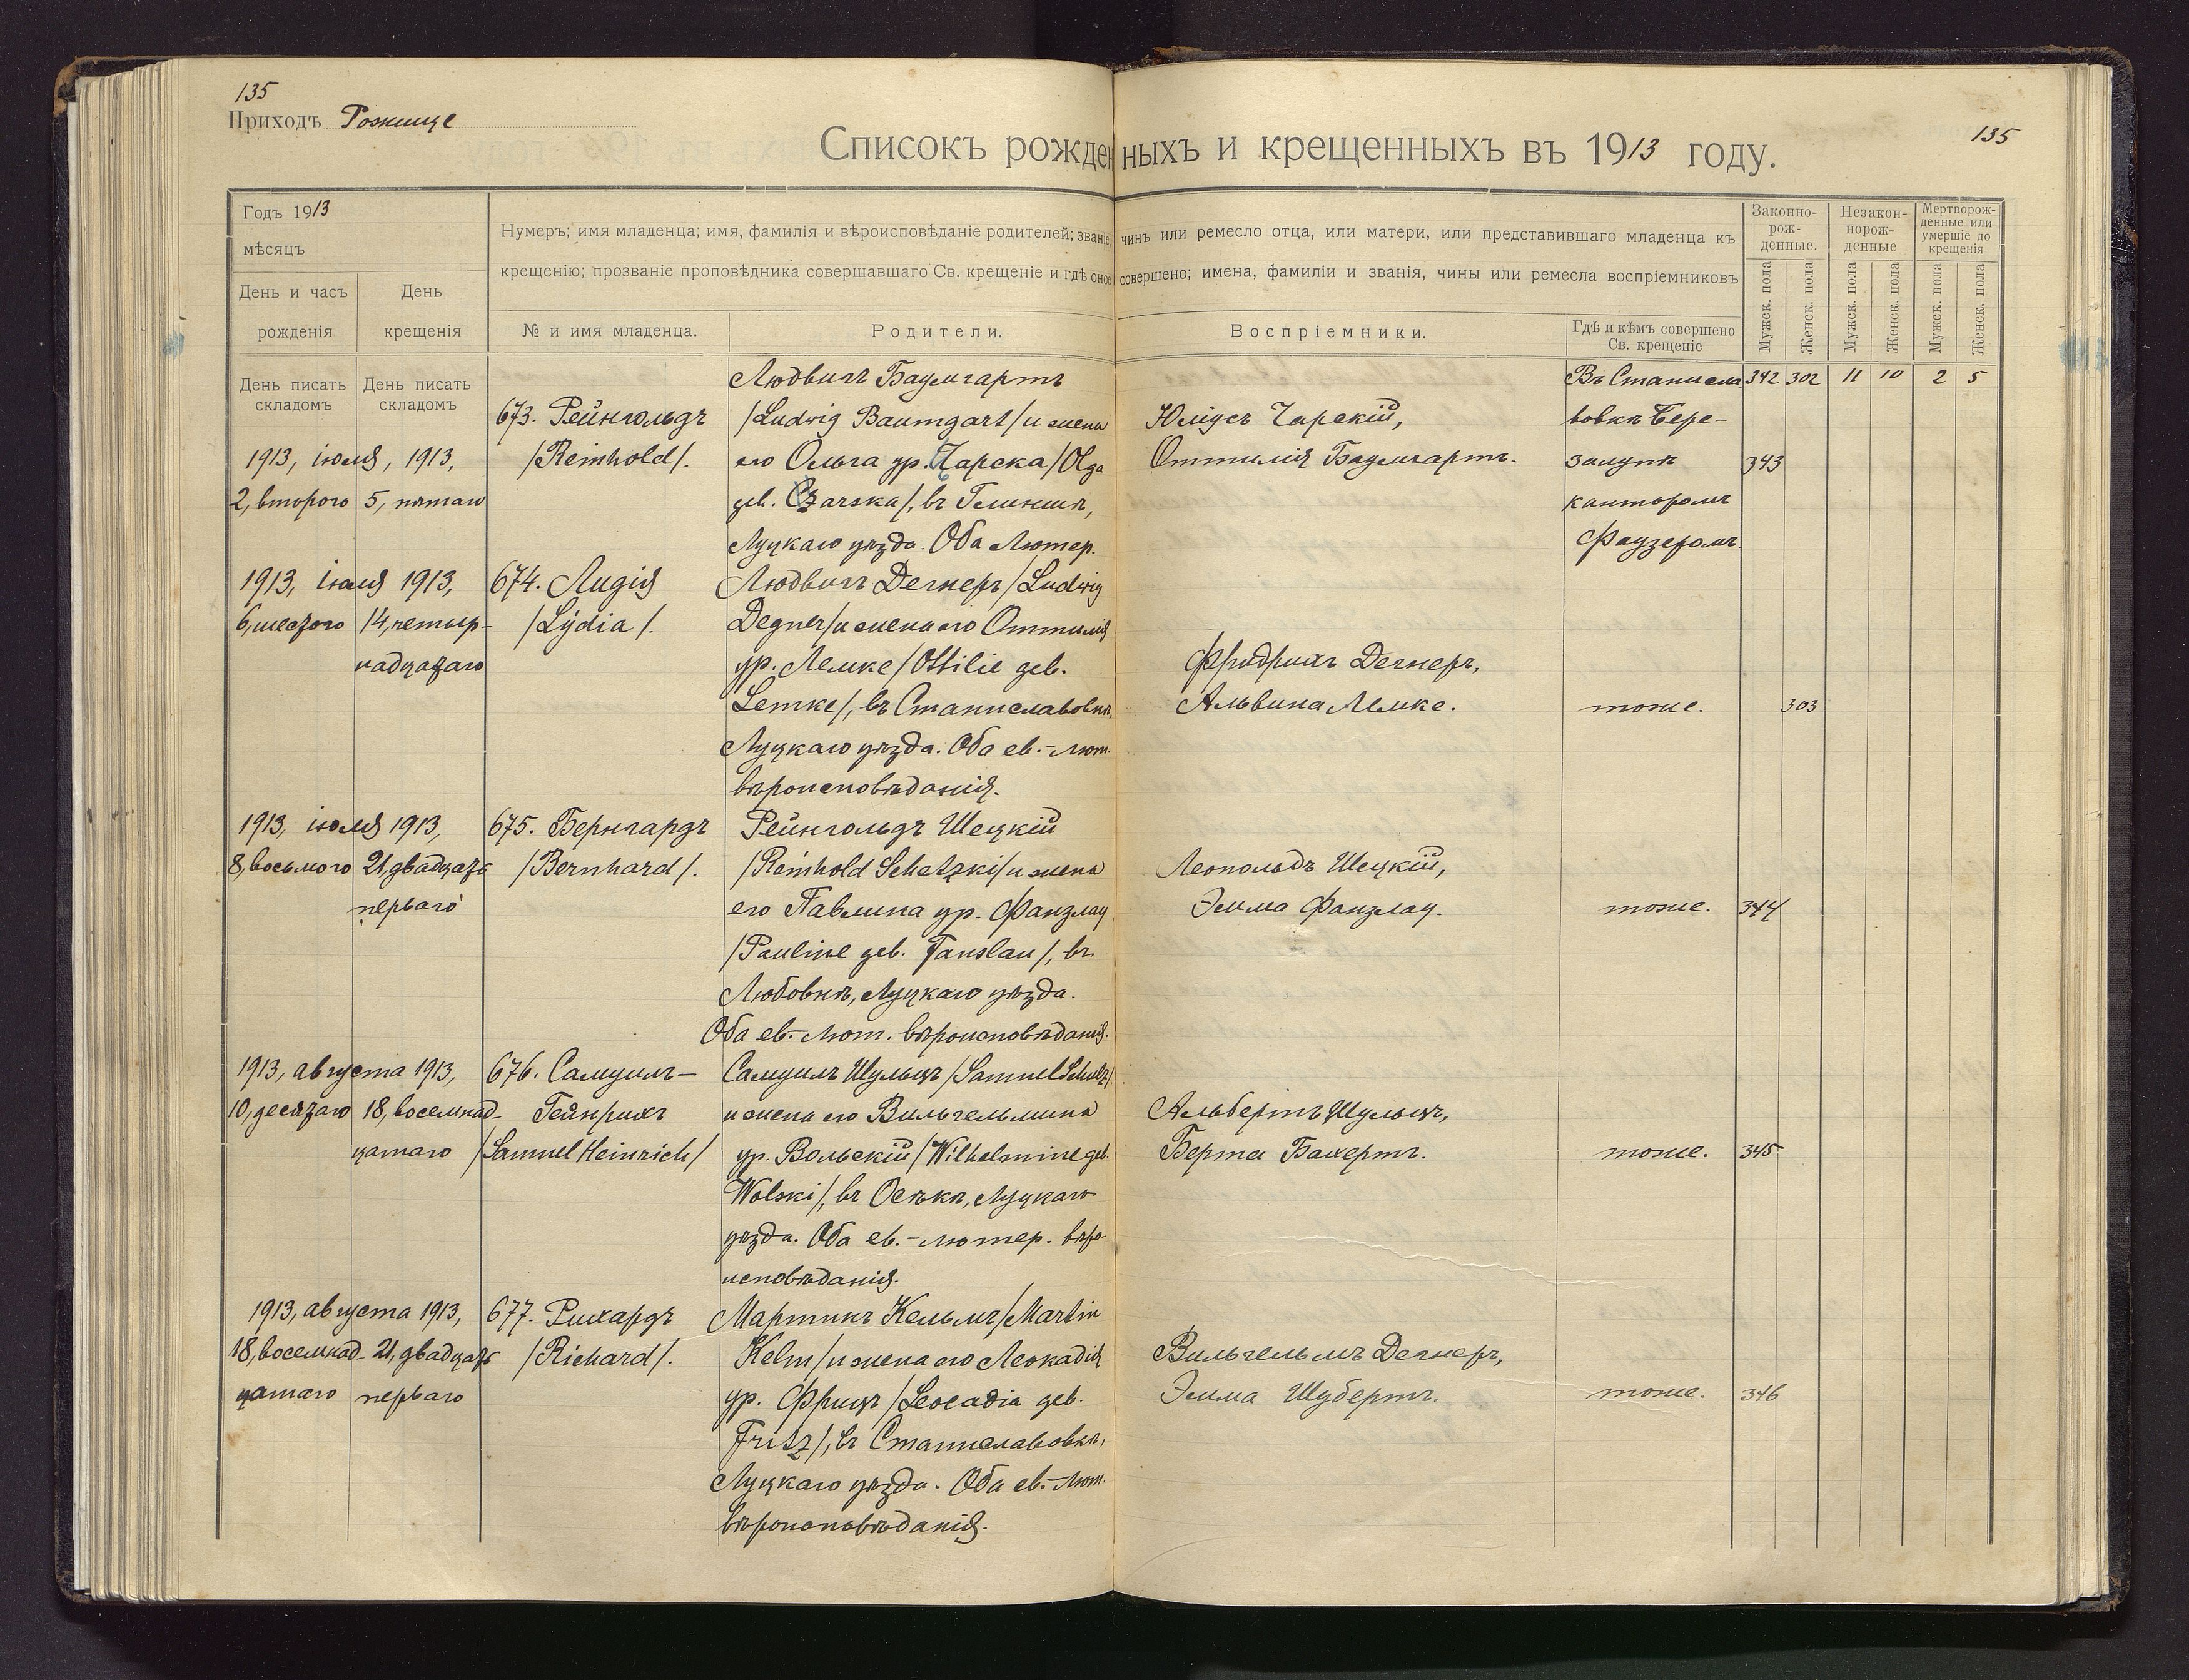 135
Приходъ Рожище
135
Списокъ рожденныхъ и крещенныхъ въ 1913 году.
Годъ 1913
мѣсяцъ
День и часъ
рожденія
День
крещенія
Нумеръ; имя младенца; имя, фамилія и вѣроисповѣданіе родителей; званіе, чинъ или ремесло отца, или матери, или представившаго младенца къ
крещенію; прозваніе проповѣдника совершавшаго Св. крещеніе и гдѣ оное совершено; имена, фамиліи и званія, чины или ремесла воспріемниковъ
№ и имя младенца.
Родители.
Воспріемники.
Гдѣ и кѣмъ совершено
Св. крещеніе
Законно-
рож-
денные.
Незакон-
норож-
денные
Мертворож-
денные или
умершіе до
крещенія
Мужск. пола
Женск. пола
Мужск. пола
Женск. пола
Мужск. пола
Женск. пола
День писать
складомъ
День писать
складомъ
342 302 11 10 2 5
1913, іюля, 1913,
2, второго 5, пятаго
673. Рейнгольдъ
/Reinhold/.
Людвигъ Баумгартъ
/Ludwig Baumgart/ и жена
его Ольга ур. Чарска /Olga
geb. Czarska/, въ Глинищѣ,
Луцкаго уѣзда. Оба Лютер.
Юліусъ Чарскій,
Оттилія Баумгартъ.
Въ Станисла
вовкѣ Бере-
залупѣ
канторомъ
Фаузеромъ.
343
1913, іюля 1913,
6, шестого 14, четыр-
надцатаго
674. Лидія
/Lydia/.
Людвигъ Дегнеръ /Ludwig
Degner/ и жена его Оттилія
ур. Лемке /Ottilie geb.
Lemke/, въ Станиславовкѣ,
Луцкаго уѣзда. Оба ев.-лют.
вѣроисповѣданія.
Фридрихъ Дегнеръ,
Альвина Лемке.
тоже.
303
1913, іюля 1913,
8, восьмого 21, двадцать
перваго
675. Бернгардъ
/Bernhard/.
Рейнгольдъ Шецкій
/Reinhold Schetzki/ и жена
его Павлина ур. Фанзлау
/Pauline geb. Fanslau/, въ
Любовкѣ, Луцкаго уѣзда.
Оба ев.-лют. вѣроисповѣданія.
Леопольдъ Шецкій,
Эмма Фанзлау.
тоже.
344
1913, августа 1913,
10, десятаго 18, восемнад-
цатаго
676. Самуилъ-
Гейнрихъ
/Samuel Heinrich/
Самуилъ Шульцъ /Samuel Schulz/
и жена его Вильгельмина
ур. Вольскій /Wilhelmine geb.
Wolski/, въ Осѣкѣ, Луцкаго
уѣзда. Оба ев.-лютер. вѣро-
исповѣданія.
Альбертъ Шульцъ,
Берта Бахертъ.
тоже.
345
1913, августа 1913,
18, восемнад- 21, двадцать
цатаго перваго
677. Рихардъ
/Richard/.
Мартинъ Кельмъ /Martin
Kelm/ и жена его Леокадія
ур. Фрицъ /Leocadia geb.
Fritz/, въ Станиславовкѣ,
Луцкаго уѣзда. Оба ев.-лют.
вѣроисповѣданія.
Вильгельмъ Дегнеръ,
Эмма Шубертъ.
тоже.
346